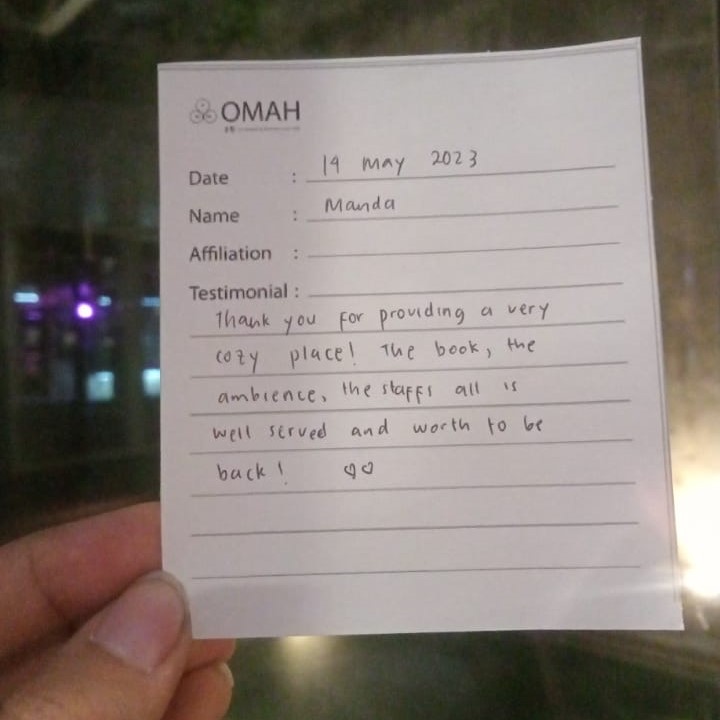 OMAH
Date : 19 may 2023
Name : Manda
Affiliation :
Testimonial :
Thank you for providing a very
cozy place! The book, the
ambience, the staffs all is
well served and worth to be
back! ♡♡